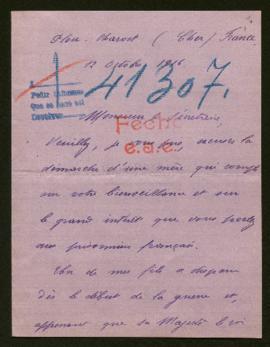 Charost (Cher) France
12 Octobre 1916
41307.
Pedir informes
Monsieur le Secrétaire,
Fecho
Veuillez, je vous prie, excuser la
démarche d'une mère qui compte
sur votre bienveillance et sur
le grand intérêt que vous portez
aux prisonniers français.
Un de mes fils a disparu
dès le début de la guerre et,
apprenant que sa Majesté le roi